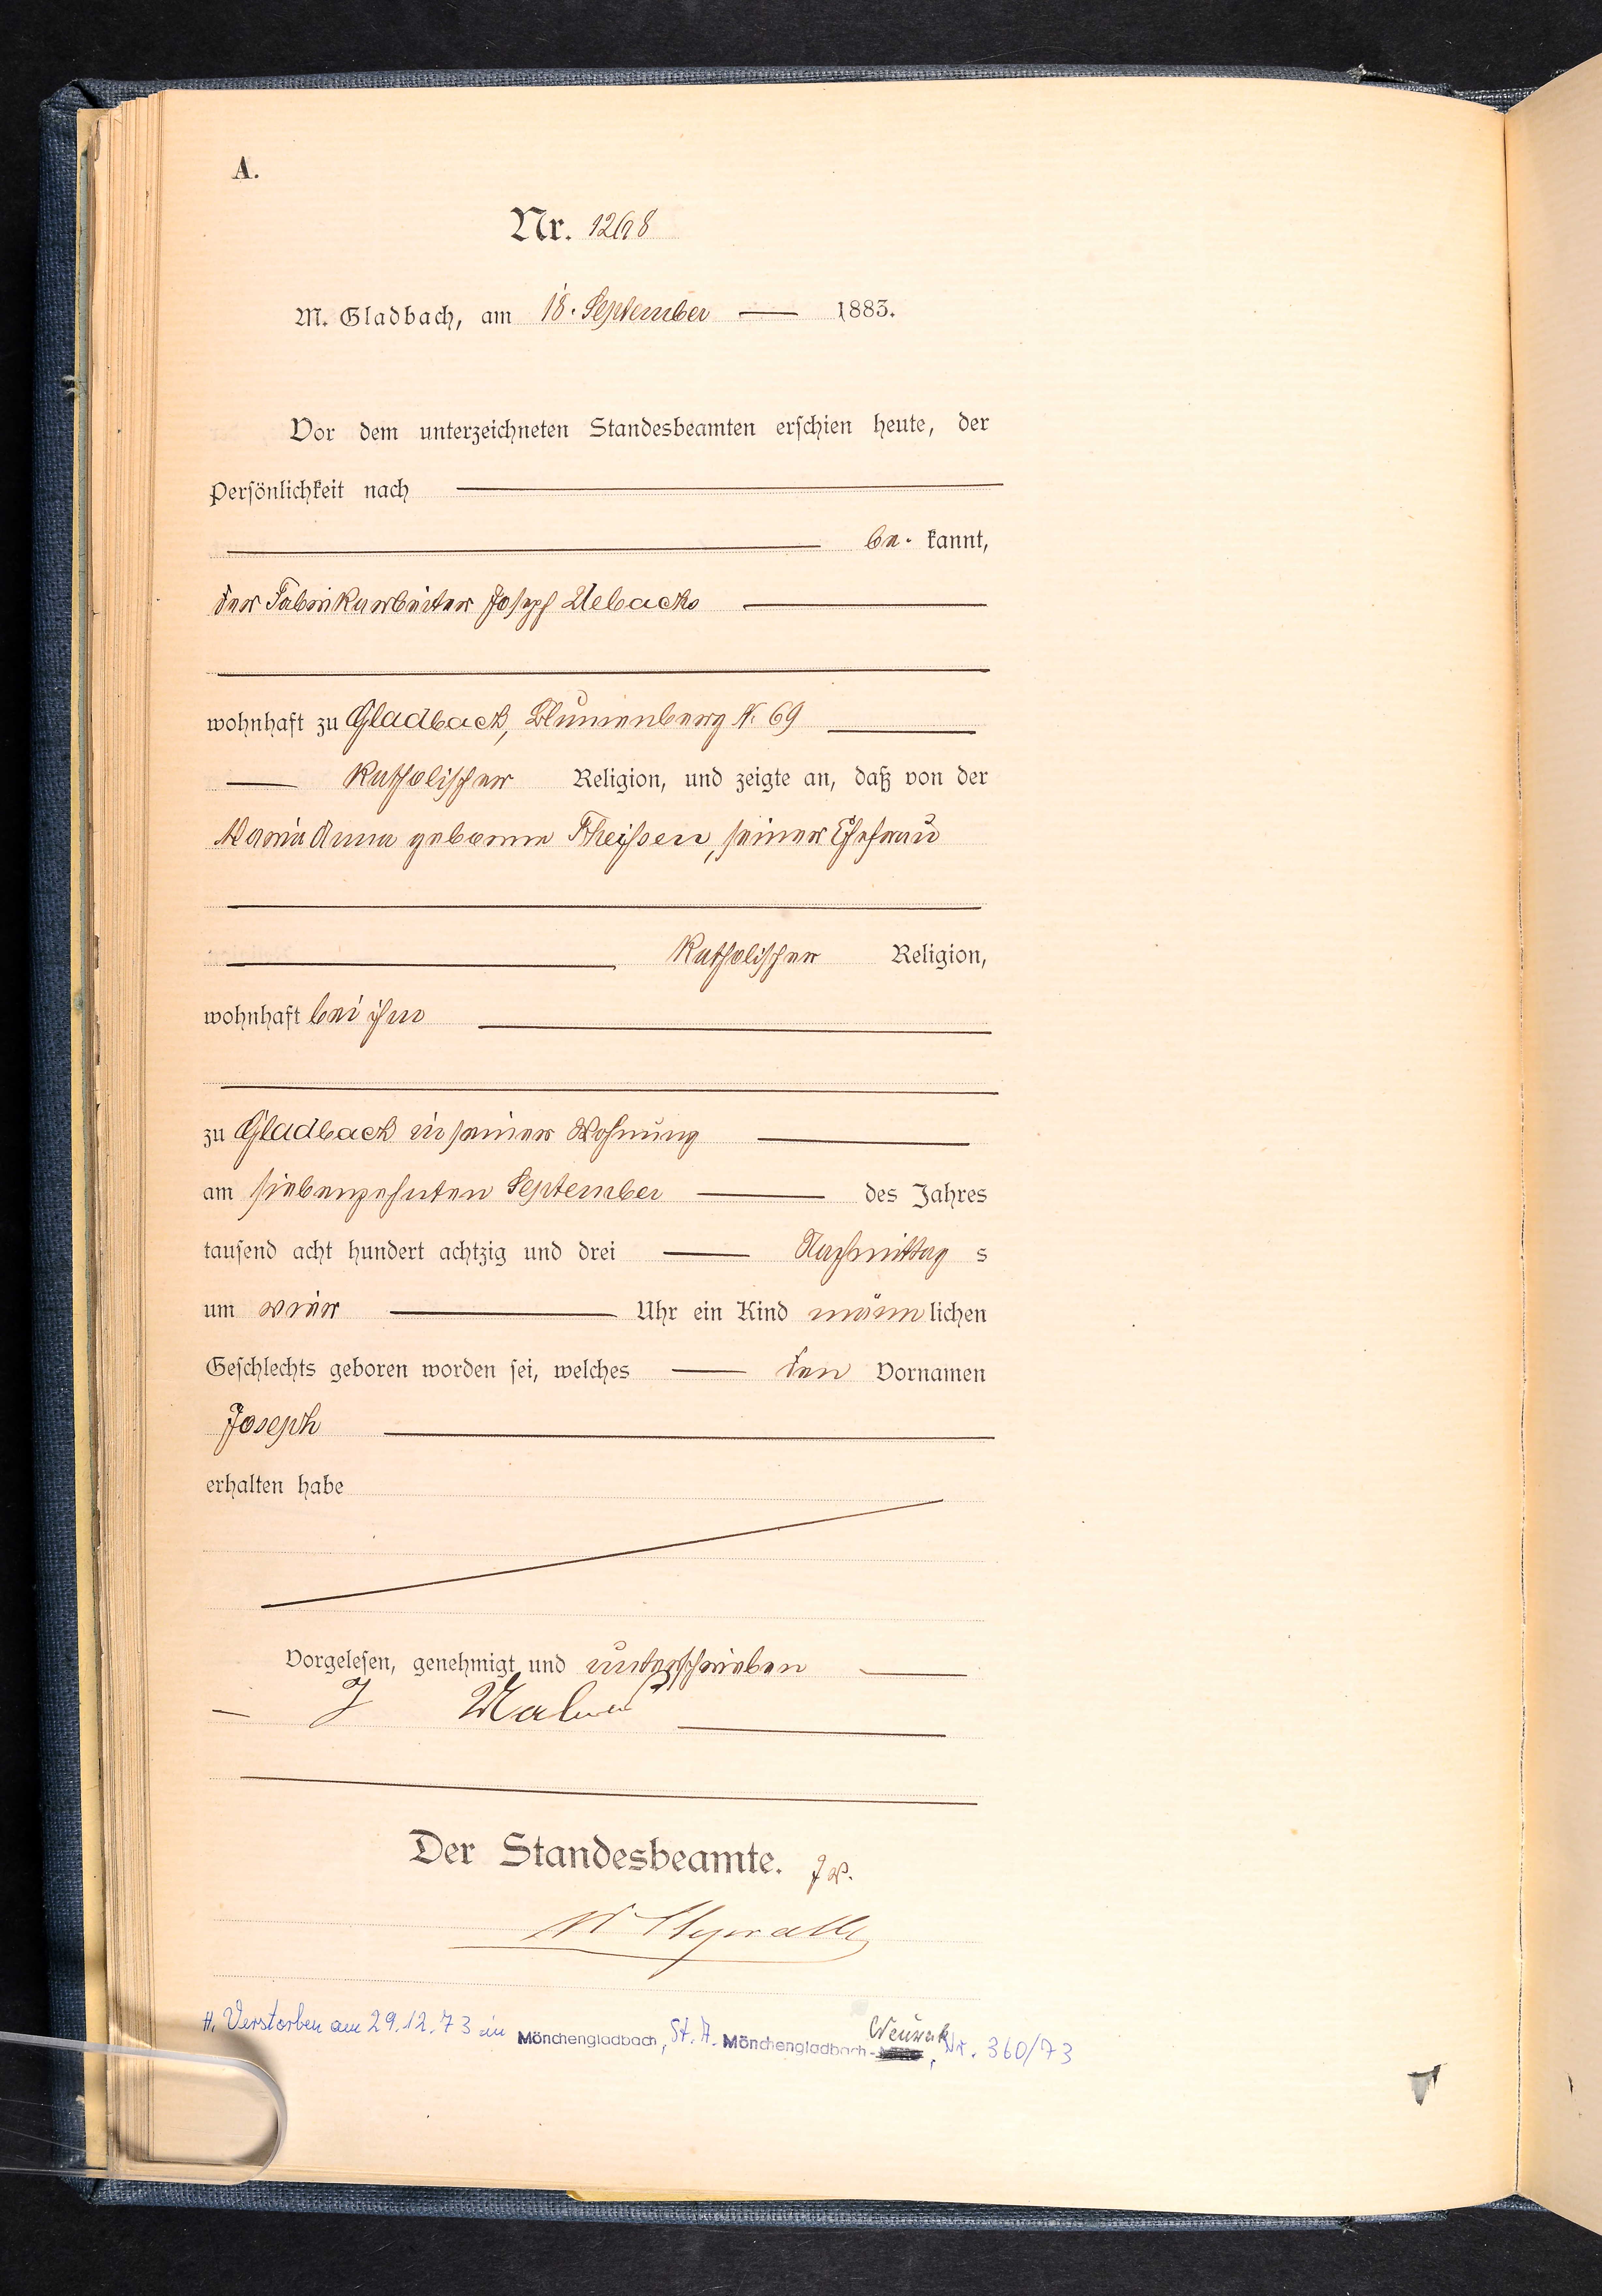 A.
Nr. 1268
M. Gladbach, am 18. September 1883.
Vor dem unterzeichneten Standesbeamten erschien heute, der
Persönlichkeit nach
be- kannt,
der Fabrikarbeiter Joseph Uebachs
wohnhaft zu Gladbach, Blumenberg N. 69
katholischer Religion, und zeigte an, daß von der
Maria Anna geborene Theißen, seiner Ehefrau
katholischer Religion,
wohnhaft bei ihm
zu Gladbach in seiner Wohnung
am siebenzehnten September des Jahres
tausend acht hundert achtzig und drei Nachmittag s
um vier Uhr ein Kind männlichen
Geschlechts geboren worden sei, welches den Vornamen
Joseph
erhalten habe
Vorgelesen, genehmigt und unterschrieben
J
Der Standesbeamte. Jv.
H. Verstorben am 29.12.73 in Mönchengladbach, St. A. Mönchengladbach- Neuwerk, Nr. 360/73